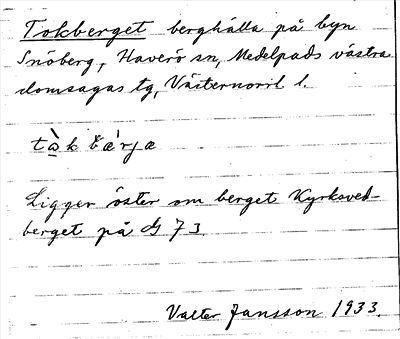 Tokberget berghälla på byn
Snöberg, Haverö sn, Medelpads västra
domsagas tg, Västernorrl l.
Ligger öster om berget Kyrksved-
berget på G 73
Valter Jansson 1933.